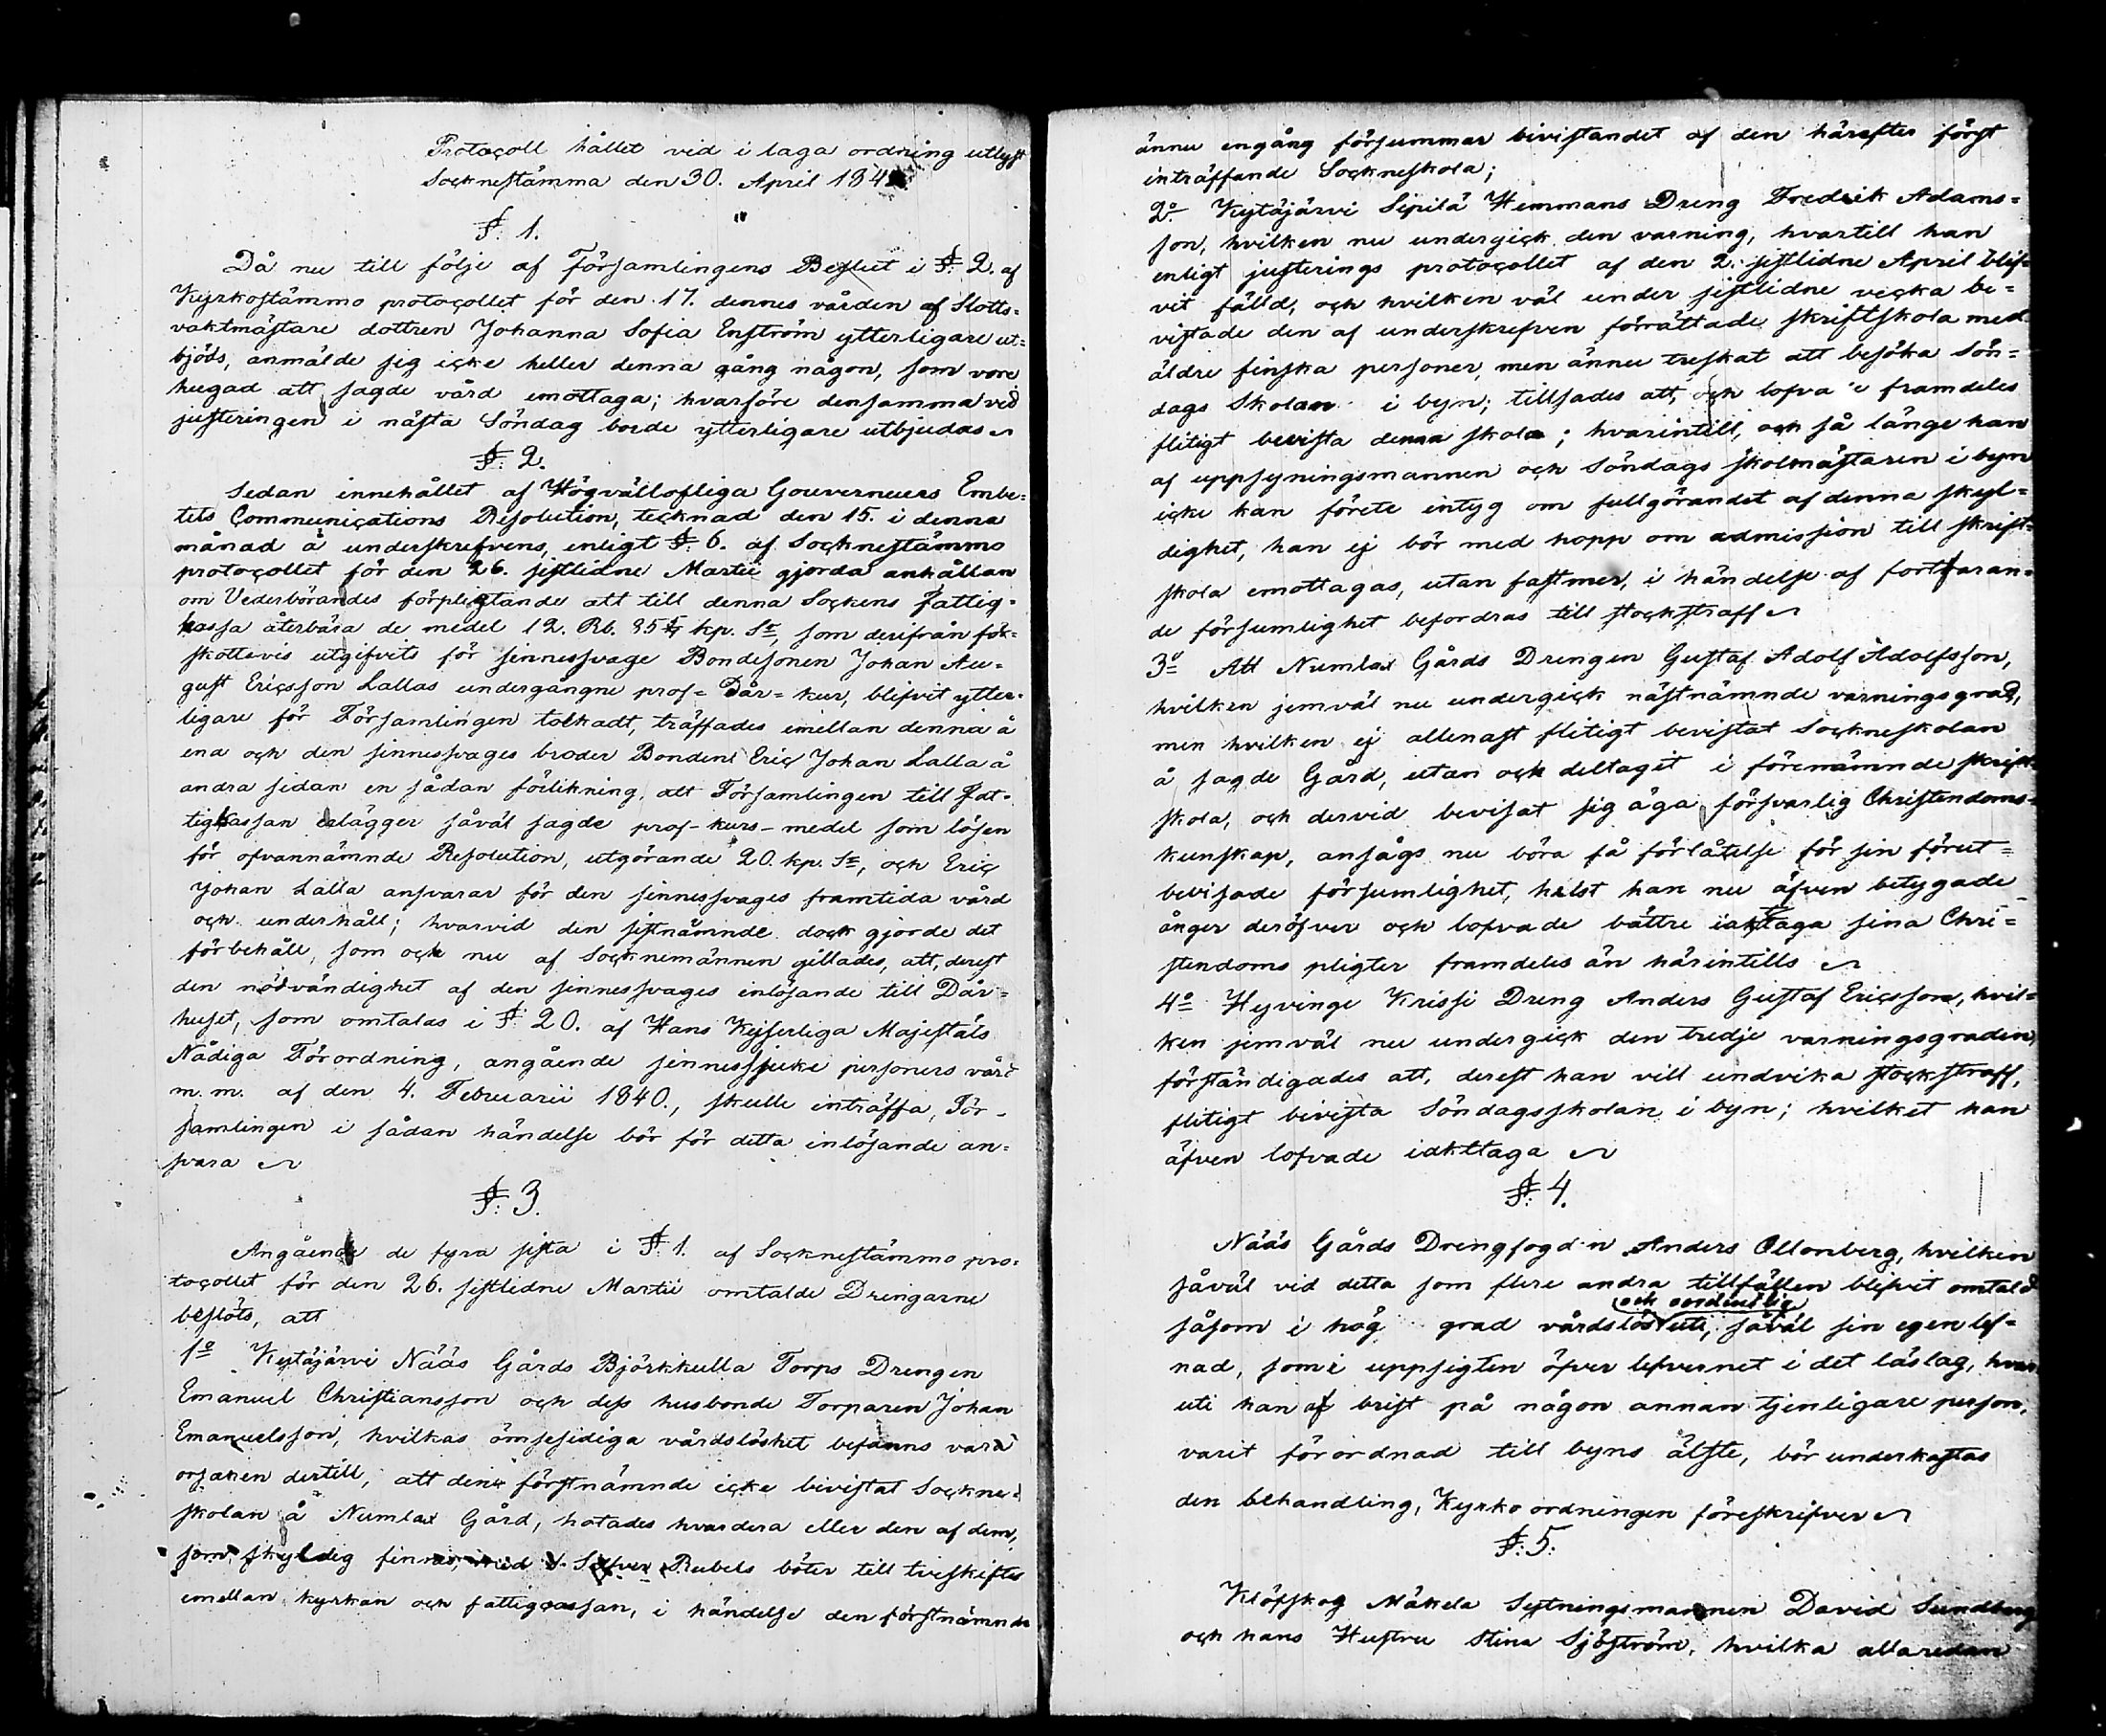 Protocoll hållet vid i laga ordning utlyst
Socknestämma den 30. April 184
§. 1.
Då nu till följe af Församlingens Beslut i §. 2. af
Kyrkostämmo protocollet för den 17. dennes vården af Slotts=
vaktmästare dottren Johanna Sofia Enström ytterligare ut=
bjöds, anmälde sig icke heller denna gång någon, som vore
hugad att sagde vård emottaga; hvarföre densamma vid
justeringen i nästa Söndag borde ytterligare utbjudas
§. 2.
Sedan innehållet af Högvällofliga Gouverneurs Embe=
tets Communications Resolution, tecknad den 15. i denna
månad å underskrefvens, enligt §. 6. af Socknestämmo
protocollet för den 26. sistlidne Martii gjorda anhållan
om Vederbörandes förpligtande att till denna Sockens fattig=
kassa återbära de medel 12. Rb. 85 kp. Sr, som derifrån för=
skottsvis utgifvits för sinnessvage Bondesonen Johan Au=
gust Ericsson Lallas undergångne prof= Dår= kur, blifvit ytter=
ligare för Församlingen tolkadt, träffades emellan denna å
ena och den sinnessvages broder Bonden Eric Johan Lalla å
andra sidan en sådan förlikning, att Församlingen till fat=
tigkassan erlägger såväl sagde prof- kurs- medel som lösen
för ofvannämnde Resolution, utgörande 20. kp. Sr, och Eric
Johan Lalla ansvarar för den sinnessvages framtida vård
och underhåll; hvarvid den sistnämnde dock gjorde det
förbehåll, som ock nu af Socknemännen gillades, att, derest
den nödvändighet af den sinnessvages inlösande till Dår=
huset, som omtalas i §. 20. af Hans Kejserliga Majestäts
Nådiga Förordning, angående sinnessjuke personers vård
m. m. af den 4. Februarii 1840., skulle inträffa, För-
samlingen i sådan händelse bör för detta inlösande an=
svara
§. 3.
Angående de fyra sista i §. 1. af Socknestämmo pro=
tocollet för den 26. sistlidne Martii omtalde Drengarne
beslöts, att
1o Kytäjärvi Nääs Gårds Björkkulla Torps Drengen
Emanuel Christiansson och dess husbonde Torparen Johan
Emanuelsson, hvilkas ömsesidiga vårdslöshet befanns vara
orsaken dertill, att den förstnämnde icke bevistat Sockne=
skolan å Numlax Gård, hotades hvardera eller den af dem,
som skyldig finnas, med Silfver Rubels böter till tveskiftes
emellan kyrkan och fattigcassan, i händelse den förstnämnde
ännu engång försummar bevistandet af den härefter först
inträffande Sockneskola;
2o Kytäjärvi Sipilä Hemmans Dreng Fredrik Adams=
son, hvilken nu undergick den varning, hvartill han
enligt justerings protocollet af den 2. sistlidne April blif=
vit fälld, och hvilken väl under sistlidne vecka be=
vistade den af underskrefven förrättade skriftskola med
äldre finska personer, men ännu treskat att besöka Sön=
dags Skolan i byn; tillsades att, och lofva framdeles
flitigt bevista denna skola; hvarintill, och så länge han
af uppsyningsmannen och Söndags skolmästaren i byn
icke kan förete intyg om fullgörandet af denna skyl=
dighet, han ej bör med hopp om admission till skrift=
skola emottagas, utan fastmer, i händelse af fortfaran=
de försumlighet befordras till stockstraff
3o Att Numlax Gårds Drengen Gustaf Adolf Adolfsson,
hvilken jemväl nu undergick nästnämnde varningsgrad,
men hvilken ej allenast flitigt bevistat Sockneskolan
å sagde Gård, utan ock deltagit i förenämnde skrift=
skola, och dervid bevisat sig äga försvarlig Christendoms=
kunskap, ansågs nu böra få förlåtelse för sin förut=
bevisade försumlighet, helst han nu äfven betygade
ånger deröfver och lofvade bättre iakttaga sina Chri=
stendoms pligter framdeles än härintills
4o Hyvinge Krissi Dreng Anders Gustaf Ericsson, hvil=
ken jemväl nu undergick den tredje varningsgraden,
förständigades att, derest han vill undvika stockstraff,
flitigt bevista Söndagsskolan i byn; hvilket han
äfven lofvade iakttaga
§. 4.
Nääs Gårds Drengfogden Anders Ollonberg, hvilken
såväl vid detta som flere andra tillfällen blifvit omtald
och oordentlig
såsom i hög grad vårdslös uti, såväl sin egen lef=
nad, som i uppsigten öfver lefvernet i det läslag, hvar
uti han af brist på någon annan tjenligare person,
varit förordnad till byns älste, bör underkastas
den behandling, Kyrko ordningen föreskrifver
§. 5.
Klöfskog Mäkelä Sytningsmannen David Sundberg
och hans Hustru Stina Sjöström, hvilka allaredan